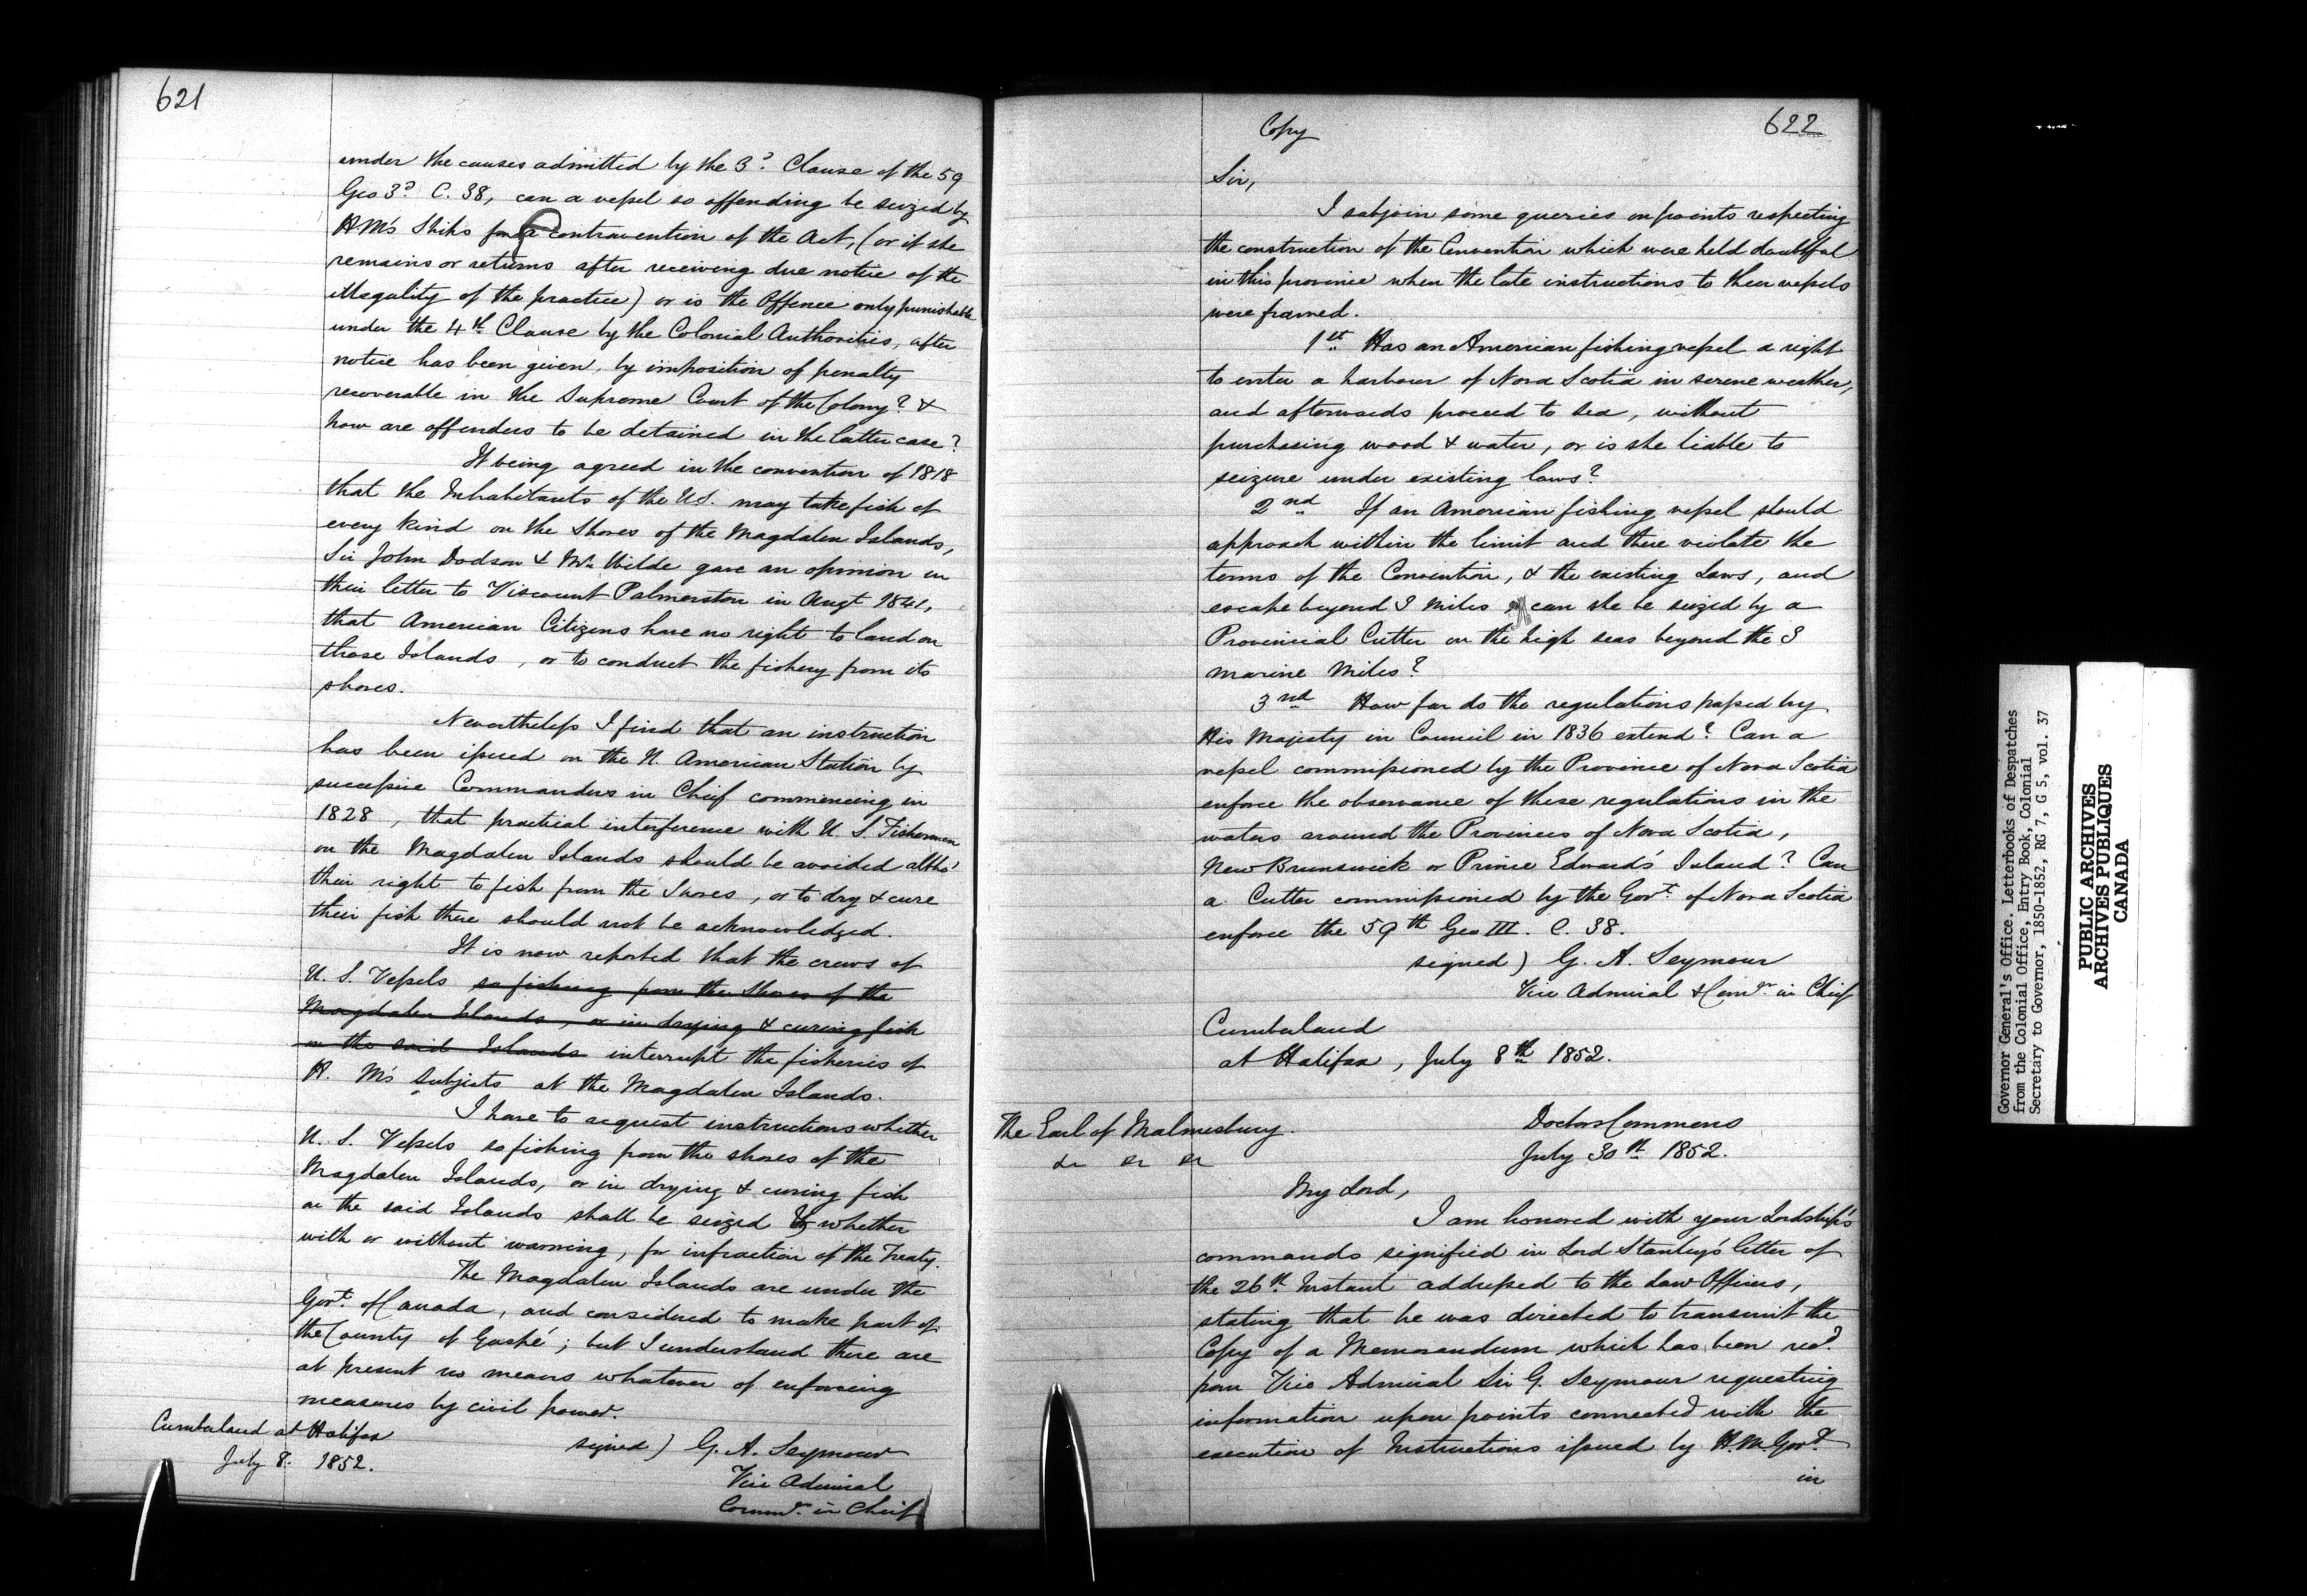 621
under the causes admitted by the 3d. Clause of the 59
Geo 3d. C. 38, can a vessel so offending be seized by
H M's Ships for a contravention of the Act, (or if she
remains or returns after receiving due notice of the
illegality of the practice) or is the Offence only punishable
under the 4th Clause by the Colonial Authorities, after
notice has been given, by imposition of penalty
recoverable in the Supreme Court of the Colony? &
how are offenders to be detained in the latter case?
It being agreed in the convention of 1818
that the Inhabitants of the U.S. may take fish of
every kind on the Shores of the Magdalen Islands,
Sir John Dodson & Mr Wilde gave an opinion in
their letter to Viscount Palmerston in Augt 1841,
that American Citizens have no right to land on
those Islands, or to conduct the fishery from its
shores.
Nevertheless I find that an instruction
has been issued on the N. American Station by
successive Commanders in Chief commencing in
1828, that practical interference with U S. Fishermen
on the Magdalen Islands should be avoided altho'
their right to fish from the Shores, or to dry & cure
their fish there should not be acknowledged.
It is now reported that the crews of
U. S. Vessels so fishing from the Shores of the
Magdalen Islands, or in drying & curing fish
on the said Islands interrupt the fisheries of
H. M's Subjects at the Magdalen Islands.
I have to request instructions whether
U. S. Vessels so fishing from the shores of the
Magdalen Islands, or in drying & curing fish
on the said Islands shall be seized & whether
with or without warning, for infraction of the Treaty.
The Magdalen Islands are under the
Govt. of Canada, and considered to make part of
the County of Gaspé; but I understand there are
at present no means whatever of enforcing
measures by civil power.
Cumberland at Halifax
July 8. 1852.
signed) G. A. Seymour
Vice Admiral
Commr. in Chief
622
Copy
Sir,
I subjoin some queries on points respecting
the construction of the Convention which were held doubtful
in this province when the late instructions to their vessels
were framed.
1st Has an American fishing vessel a right
to enter a harbour of Nova Scotia in serene weather,
and afterwards proceed to sea, without
purchasing wood & water, or is she liable to
seizure under existing laws?
2nd If an American fishing vessel should
approach within the limit and there violate the
terms of the Convention, & the existing Laws, and
escape beyond 3 miles can she be seized by a
Provincial Cutter on the high seas beyond the 3
marine miles?
3nd How far do the regulations passed by
His Majesty in Council in 1836 extend? Can a
vessel commissioned by the Province of Nova Scotia
enforce the observance of these regulations in the
waters around the Provinces of Nova Scotia,
New Brunswick or Prince Edward's Island? Can
a Cutter commissioned by the Govt. of Nova Scotia
enforce the 59th Geo III. C. 38.
signed) G. A. Seymour
Vice Admiral & Comr in Chief
Cumberland
at Halifax, July 8th 1852.
The Earl of Malmesbury.
&c &c &c
Doctors Commons
July 30th 1852.
My Lord,
I am honored with your Lordship's
commands signified in Lord Stanley's letter of
the 26th Instant addressed to the Law Officers,
stating that he was directed to transmit the
Copy of a Memorandum which has been recd.
from Vice Admiral Sir G. Seymour requesting
information upon points connected with the
execution of Instructions issued by H. M. Govt.
in
Governor General's Office. Letterbooks of Despatches
from the Colonial Office, Entry Book, Colonial
Secretary to Governor, 1850-1852, RG 7, G 5, vol. 37
PUBLIC ARCHIVES
ARCHIVES PUBLIQUES
CANADA